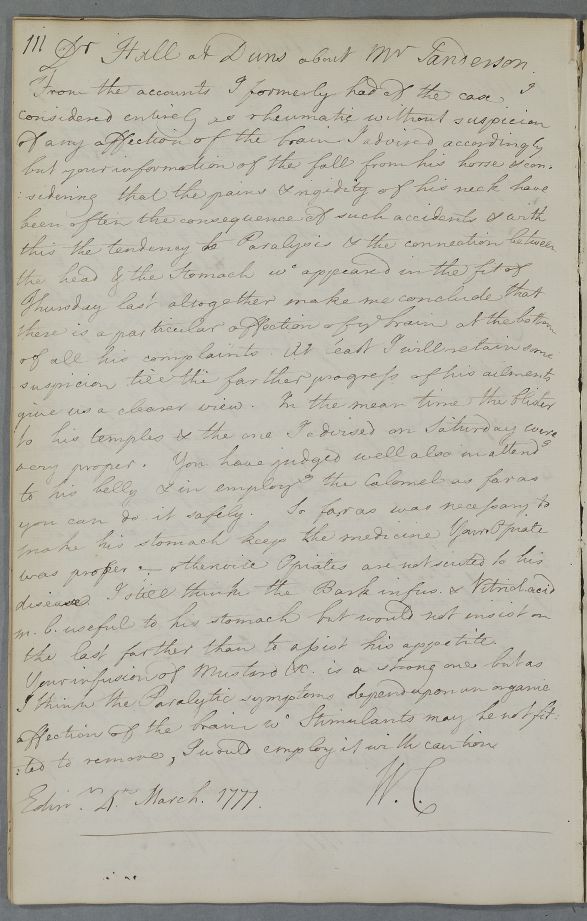 111
Dr Hall at Duns about Mr Sanderson
From the accounts I formerly had of the case I
considered entirely as rheumatic without suspicion
of any affection of the brain I advised accordingly
but your information of the fall from his horse & con-
:sidering that the pains & rigidity of his neck have
been often the consequence of such accidents & with
this the tendency to Paralysis & the connection between
the head & the Stomach wc appeared in the fit of
Thursday last altogether make me conclude that
there is a particular affection of ye brain at the bottom
of all his complaints. At least I will retain some
suspicion till the farther progress of his ailments
give us a clearer view. In the mean time the blister
to his temples & the one I advised on Saturday were
very proper. You have judged well also in attendg
to his belly & in employg the Calomel as far as
you can do it safely. So far as was necessary to
make his stomach keep the medicine Your Opiate
was proper — otherwise Opiates are not suited to his
disease. I still think the Bark infus. & Vitriol. acid
m. b. useful to his stomach but would not insist on
the last farther than to assist his appetite.
Your infusion of Mustard &c. is a strong one but as
I think the Paralytic symptoms depend upon an organic
affection of the brain wc Stimulants may be not fit-
:ted to remove, I would employ it with caution
Edinr 4th March. 1777. W. C